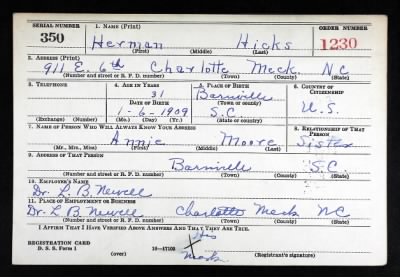 SERIAL NUMBER 1. NAME (Print) ORDER NUMBER
350 Herman Hicks 1230
(First) (Middle) (Last)
2. ADDRESS (Print)
911 E. 6th Charlotte Meck. NC
(Number and street or R. F. D. number) (Town) (County) (State)
3. TELEPHONE 4. AGE IN YEARS 5. PLACE OF BIRTH 6. COUNTRY OF CITIZENSHIP
31 Barnville
DATE OF BIRTH (Town or county)
1-6-1909 S.C. U.S.
(Exchange) (No.) (Mo.) (Day) (Yr.) (State or country)
7. NAME OF PERSON WHO WILL ALWAYS KNOW YOUR ADDRESS 8. RELATIONSHIP OF THAT PERSON
Annie Moore Sister
(Mr., Mrs., Miss) (First) (Middle) (Last)
9. ADDRESS OF THAT PERSON
Barnville S.C.
(Number and street or R. F. D. number) (Town) (County) (State)
10. EMPLOYER'S NAME
Dr. L. B. Newell
11. PLACE OF EMPLOYMENT OR BUSINESS
Dr. L. B. Newell Charlotte Meck NC
(Number and street or R. F. D. number) (Town) (County) (State)
I AFFIRM THAT I HAVE VERIFIED ABOVE ANSWERS AND THAT THEY ARE TRUE.
REGISTRATION CARD his
D. S. S. Form 1 16—17105 X
(over) mark